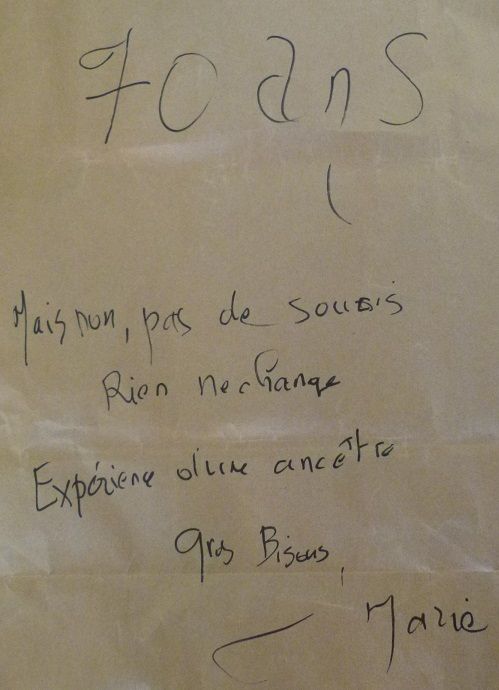 70 ans
Mais non, pas de soucis
Rien ne change
Expérience d'une ancêtre
gros Bisous,
Marie